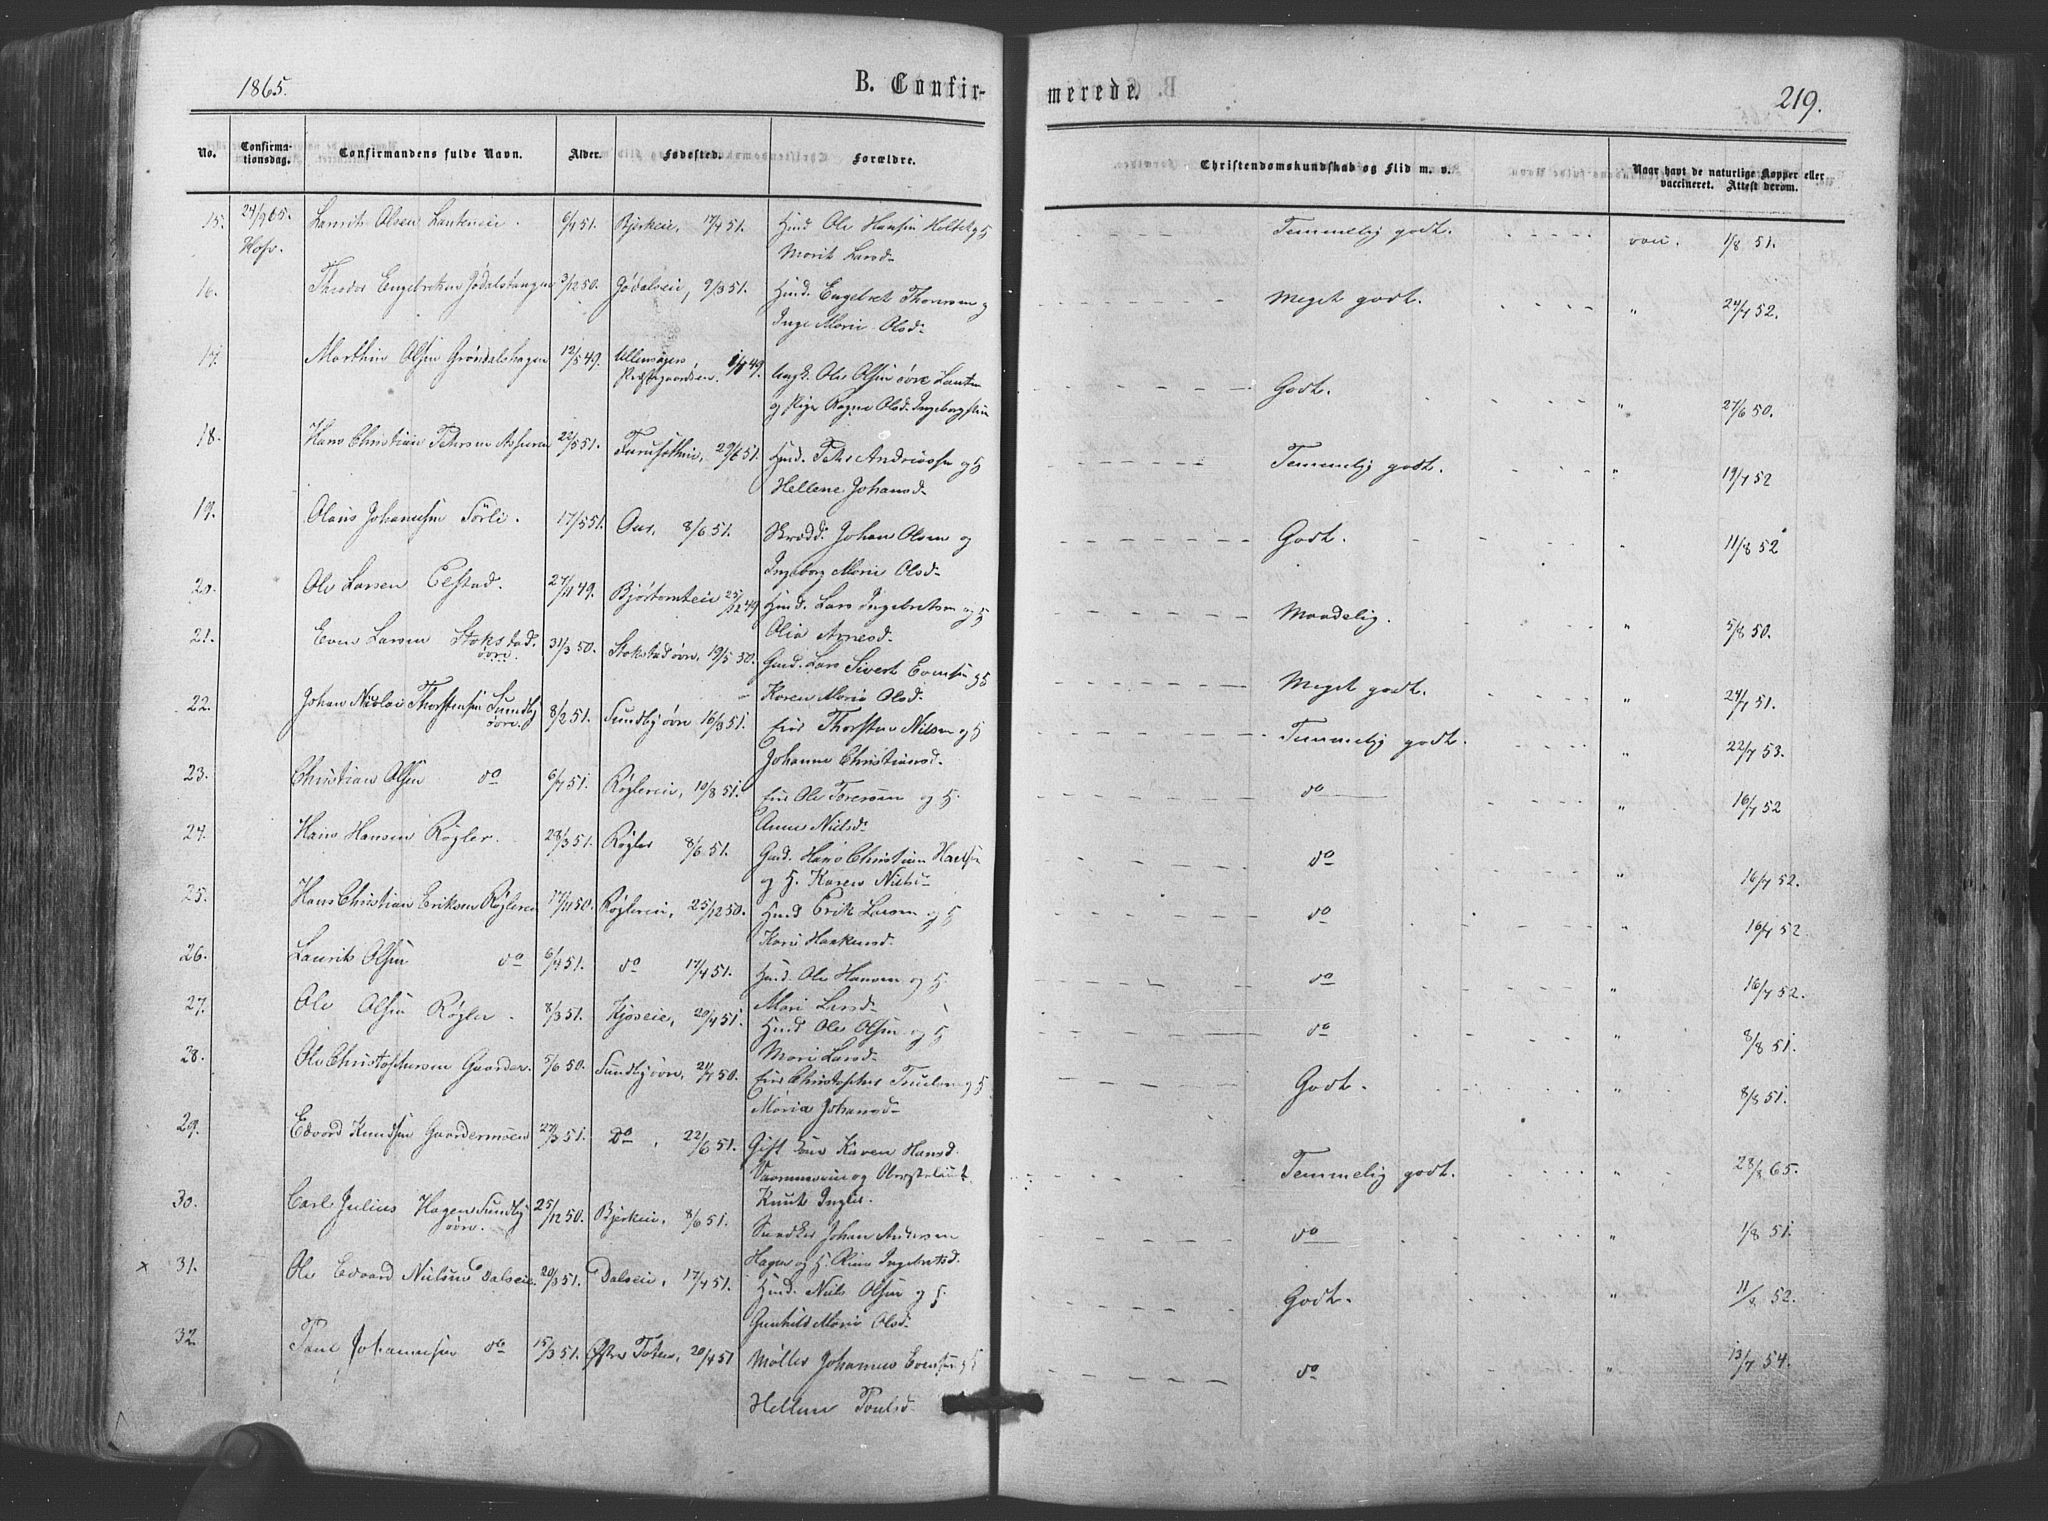 1865.
B. Confir-
merede.
219.
No.
Confirma-
tionsdag.
Confirmandens fulde Navn.
Alder.
Fødested.
Forældre.
Christendomskundskab og Flid m. v.
Naar havt de naturlige Kopper eller
vaccineret. Attest derom.
15. 24/9 65. Laurits Olsen 6/4 51. Bjerkeie, 17/4 51. Hmd. Ole Hansen og H Temmelig godt. vac. 1/8 51.
Hov. Marit Larsd.
16. Theodor Engebretsen Jødalstangen 3/12 50. Jødalseie, 9/3 51. Hmd. Engebret Thoresen og Meget godt. " 24/7 52.
Inge Marie Olsd.
17. Marthin Olsen Grøndalshagen 12/5 49. Ullensagers 49. Ungk. Ole Olsen øvre
Præstegaardseie. Godt. " 27/6 50.
og Pige Ragne Olsd.
18. Hans Christian Petersen 22/5 51. 29/6 51. Hmd. Peter Andreassen og H Temmelig godt. " 19/7 52
Hellene Johansd.
19. Olaus Johannesen Sørli. 17/5 51. Aur, 8/6 51. Skrædd. Johan Olsen og Godt. " 11/8 52
Ingeborg Marie Olsd.
20. Ole Larsen Elstad. 27/11 49. Bjørtomteie 25/12 49 Hmd. Lars Ingebretsen og H Maadelig. " 5/8 50.
Olia Arnesd.
21. Even Larsen Stokstad 31/3 50. Stokstad øvre, 19/5 50. Gmd. Lars Sivert Evensen og H Meget godt. " 24/7 51.
øvre. Karen Marie Olsd.
22. Johan Nicolai Thorstensen Sundby 8/2 51. Sundby øvre 16/3 51. Eier Thorsten Nilsen og H Temmelig godt. " 22/7 53.
øvre. Johanne Christiansd.
23. Christian Olsen do 6/7 51. Røglereie, 10/8 51. Eier Ole Toresen og H. do " 16/7 52
Anne Nielsd.
24. Hans Hansen Røgler. 28/3 51. Røgler 8/6 51. Gmd. Hans Christian Hansen do " 16/7 52.
og H. Karen Nielsd.
25. Hans Christian Eriksen Røglereie 17/11 50. Røglereie, 25/12 50. Hmd Erik Larsen og H do " 16/7 52
Kari Haakensd.
26. Laurits Olsen do 6/4 51. do 17/4 51. Hmd. Ole Hansen og H. do " 16/7 52.
Mari Larsd.
27. Ole Olsen Røgler. 8/3 51. Kjøseie, 20/4 51. Hmd Ole Olsen og H do " 8/8 51.
Mari Larsd.
28. Ole Christophersen Gaarder. 5/6 50. Sundby øvre, 21/7 50. Eier Christopher Truelsen og H Godt. " 8/8 51.
Maria Johansd.
29. Edvard Knudsen Gaardermoen 27/3 51. Do , 22/6 51. Gift Karen Hansd. Temmelig godt. " 28/8 65.
og Oberstlieut.
Knut Ingier.
30. Carl Julius Hagen Sundby 25/12 50. Bjerkeie, 8/6 51. Johan Andersen do " 1/8 51.
øvre. Hagen og H. Oline Ingebretsd.
x 31. Ole Edvard Nielsen Dalseie 20/3 51. Dalseie, 17/4 51. Hmd. Niels Olsen og H. Godt. " 11/8 52.
Gunhild Marie Olsd.
32. Paul Johannesen do 15/3 51. Østre Toten, 20/4 51 Møller Johannes Evensen og H do " 13/7 54.
Hellene Paulsd.